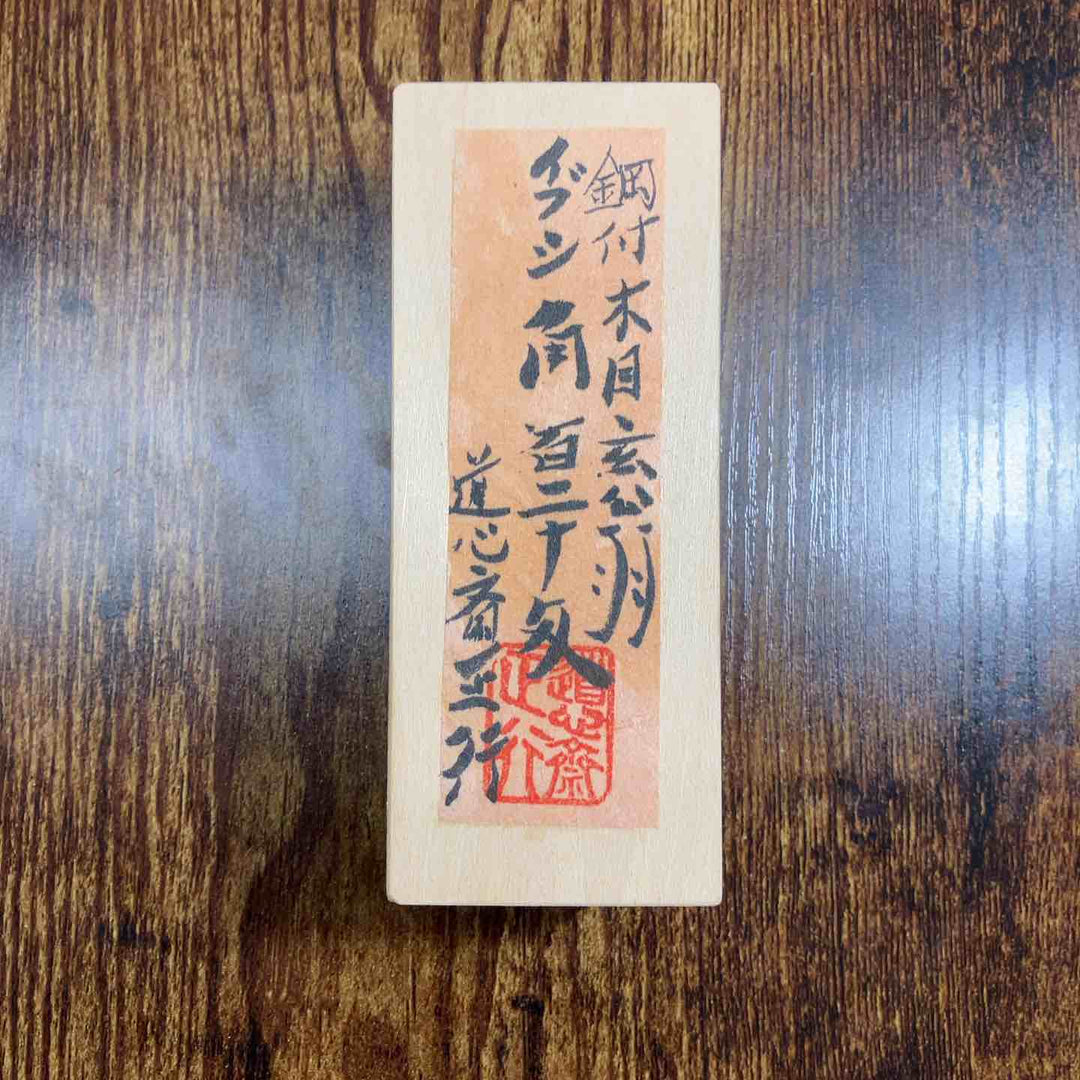 鋼付木目玄翁
イブシ角百二十匁
道心斎正行
道心斎
正行